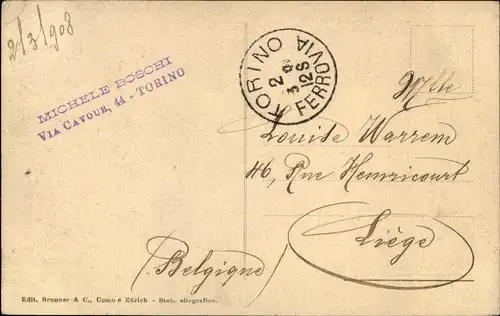 2/3/908
MICHELE BOSCHI
VIA CAVOUR, 44 - TORINO
TORINO
FERROVIA
2
3
12S
Mlle
Louise Warrem
46, Rue Hemricourt
Liège
(Belgique)
Edit. Brunner & C., Como e Zürich - Stab. eliografico.